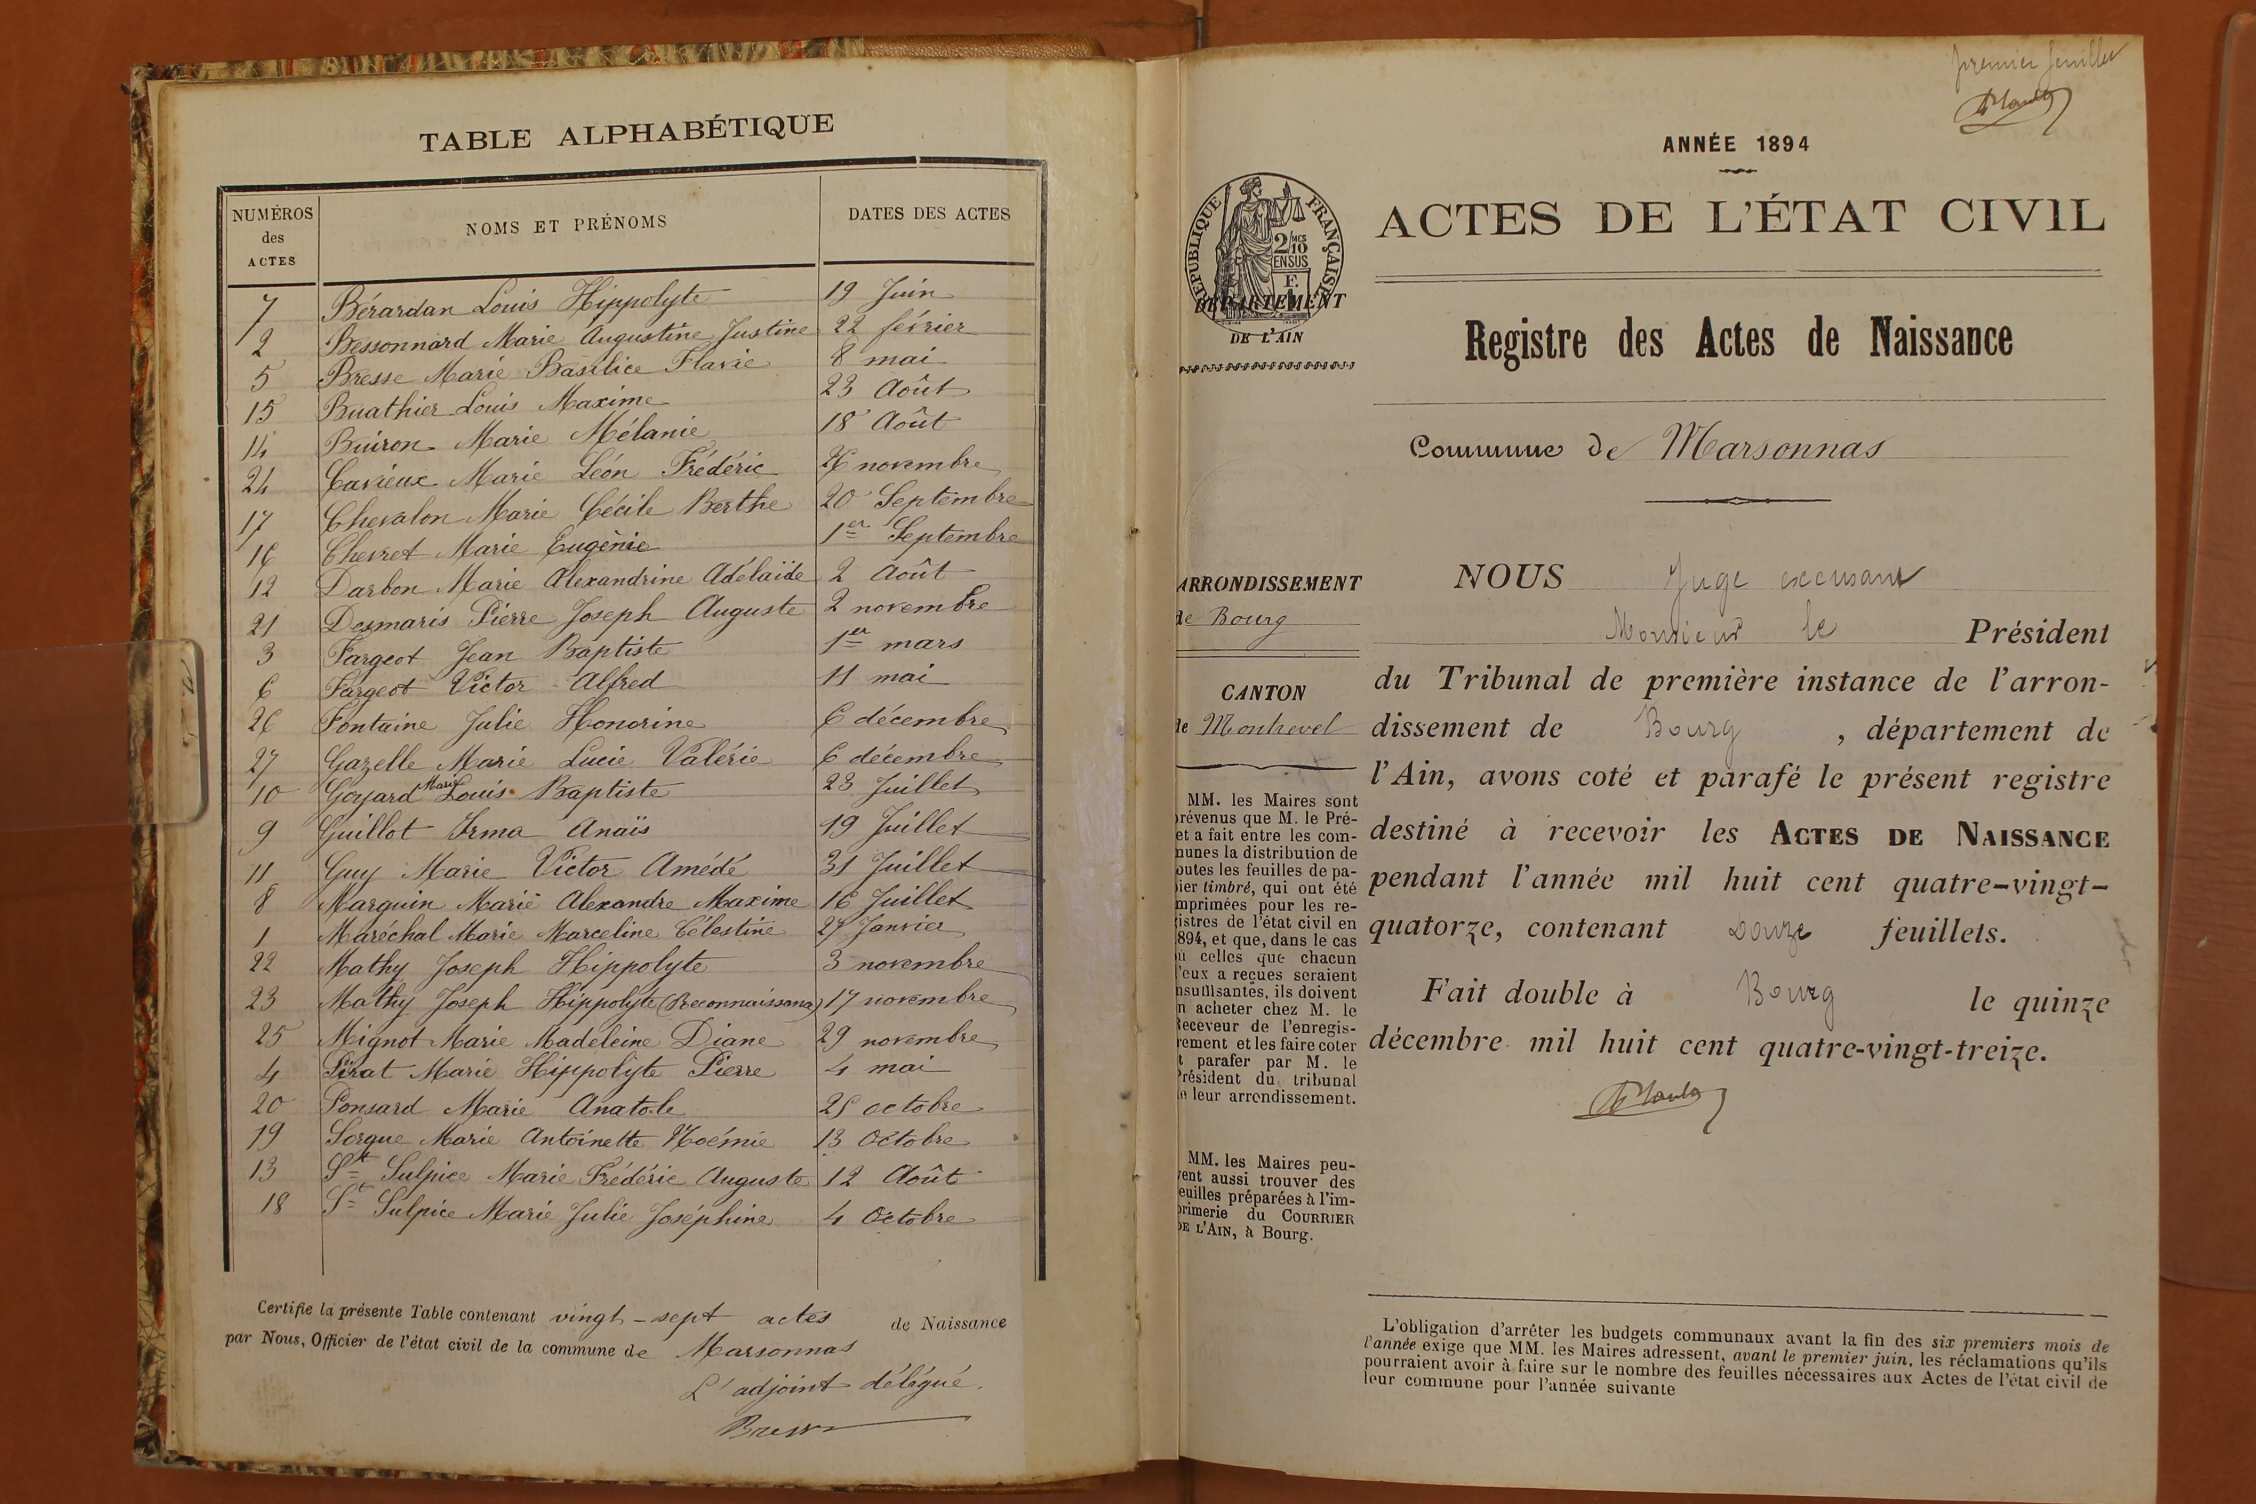 TABLE ALPHABÉTIQUE
NUMÉROS des ACTES NOMS ET PRÉNOMS DATES DES ACTES
7 Bérardan Louis Hippolyte 19 Juin
2 Bessonnard Marie Augustine Justine 22 février
5 Bresse Marie Basilice Flavie 8 mai
15 Buathier Louis Maxime 23 Août
14 Buiron Marie Mélanie 18 Août
24 Cavieux Marie Léon Frédéric 26 novembre
17 Chevalon Marie Cécile Berthe 20 Septembre
16 Chevret Marie Eugènie 1er Septembre
12 Darbon Marie Alexandrine Adélaïde 2 Août
21 Desmaris Pierre Joseph Auguste 2 novembre
3 Fargeot Jean Baptiste 1er mars
6 Fargeot Victor Alfred 11 mai
26 Fontaine Julie Honorine 6 décembre
27 Gazelle Marie Lucie Valérie 6 décembre
10 Goyard Marie Louis Baptiste 23 Juillet
9 Guillot Irma Anaïs 19 Juillet
11 Guy Marie Victor Amédé 31 Juillet
8 Marguin Marie Alexandre Maxime 16 Juillet
1 Maréchal Marie Marceline Célestine 27 Janvier
22 Mathy Joseph Hippolyte 3 novembre
23 Mathy Joseph Hippolyte (Reconnaissance) 17 novembre
25 Mignot Marie Madeleine Diane 29 novembre
4 Pirat Marie Hippolyte Pierre 4 mai
20 Ponsard Marie Anatole 25 octobre
19 Sorgue Marie Antoinette Noémie 13 Octobre
13 St Sulpice Marie Frédéric Auguste 12 Août
18 St Sulpice Marie Julie Joséphine 4 Octobre
Certifie la présente Table contenant vingt-sept actes de Naissance
par Nous, Officier de l'état civil de la commune de Marsonnas
L'adjoint délégué.
premier feuillet
ANNÉE 1894
RÉPUBLIQUE FRANÇAISE
2/10 MES
EN SUS
DÉPARTEMENT
DE L'AIN
ACTES DE L'ÉTAT CIVIL
Registre des Actes de Naissance
Commune de Marsonnas
ARRONDISSEMENT
de Bourg
CANTON
de Montrevel
MM. les Maires sont
prévenus que M. le Pré-
fet a fait entre les com-
munes la distribution de
toutes les feuilles de pa-
pier timbré, qui ont été
imprimées pour les re-
gistres de l'état civil en
1894, et que, dans le cas
où celles que chacun
d'eux a reçues seraient
insuffisantes, ils doivent
en acheter chez M. le
Receveur de l'enregis-
trement et les faire coter
et parafer par M. le
Président du tribunal
de leur arrondissement.
MM. les Maires peu-
vent aussi trouver des
feuilles préparées à l'im-
primerie du COURRIER
DE L'AIN, à Bourg.
NOUS Juge excusant
Monsieur le Président
du Tribunal de première instance de l'arron-
dissement de Bourg, département de
l'Ain, avons coté et parafé le présent registre
destiné à recevoir les ACTES DE NAISSANCE
pendant l'année mil huit cent quatre-vingt-
quatorze, contenant douze feuillets.
Fait double à Bourg le quinze
décembre mil huit cent quatre-vingt-treize.
L'obligation d'arrêter les budgets communaux avant la fin des six premiers mois de
l'année exige que MM. les Maires adressent, avant le premier juin, les réclamations qu'ils
pourraient avoir à faire sur le nombre des feuilles nécessaires aux Actes de l'état civil de
leur commune pour l'année suivante